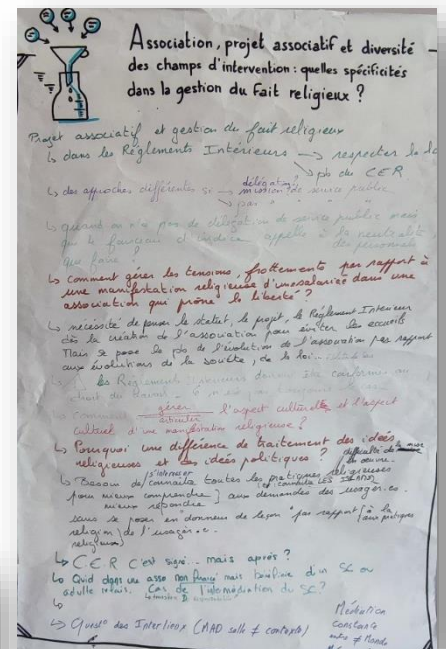 Association, projet associatif et diversité
des champs d'intervention : quelles spécificités
dans la gestion du fait religieux ?
Projet associatif et gestion du fait religieux
↳ dans les Réglements Intérieurs → respecter la
pb du CER
↳ des approches différentes si → délégation? mission de service public
→ pas " " " "
↳ quand on n'a pas de délégation de service public mais
que le faisceau d'indice appelle à la neutralité
des personnels
que faire ?
↳ comment gérer les tensions, frottements par rapport à
une manifestation religieuse d'un.salarié dans une
association qui prône la liberté ?
↳ nécessité de penser le statut, le projet, le Règlement Intérieur
dès la création de l'association pour éviter les écueils
Mais se pose le pb de l'évolution de l'association par rapport
aux évolutions de la société, de la loi...
↳ les Règlements doivent être conformes au
droit du travail
↳ comment gérer articuler l'aspect culturel et l'aspect
cultuel d'une manifestation religieuse ?
↳ Pourquoi une différence de traitement des idées
religieuses et des idées politiques ? difficulté de
mise en œuvre
↳ Besoin de connaître s'intéresser toutes les pratiques religieuses
pour mieux comprendre ] aux demandes des usagers.es
mieux répondre
sans se poser en donneur de leçon par rapport à la
religion de l'usager.e. aux pratiques
religieuses
↳ C.E.R c'est signé... mais après ?
↳ Quid dans une asso non mais bénéficie d'un SC ou
adulte relais. Cas de l'intermédiation du SC?
↳
↳ Quest° des Interlieux (MAD salle ≠ contexte)
Médiation
constance